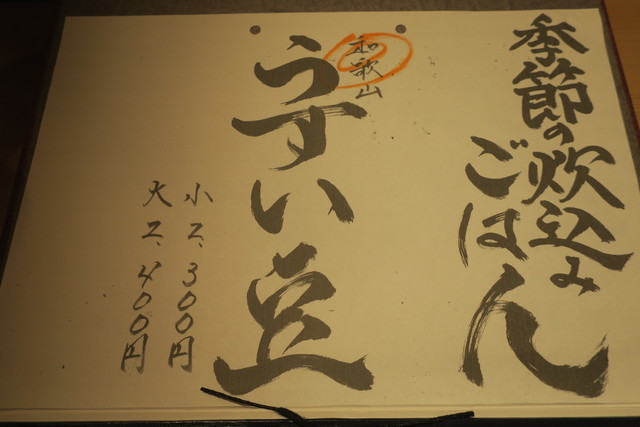 季節の炊込み
ごはん
和歌山
うすい豆
小 2,300円
大 2,400円